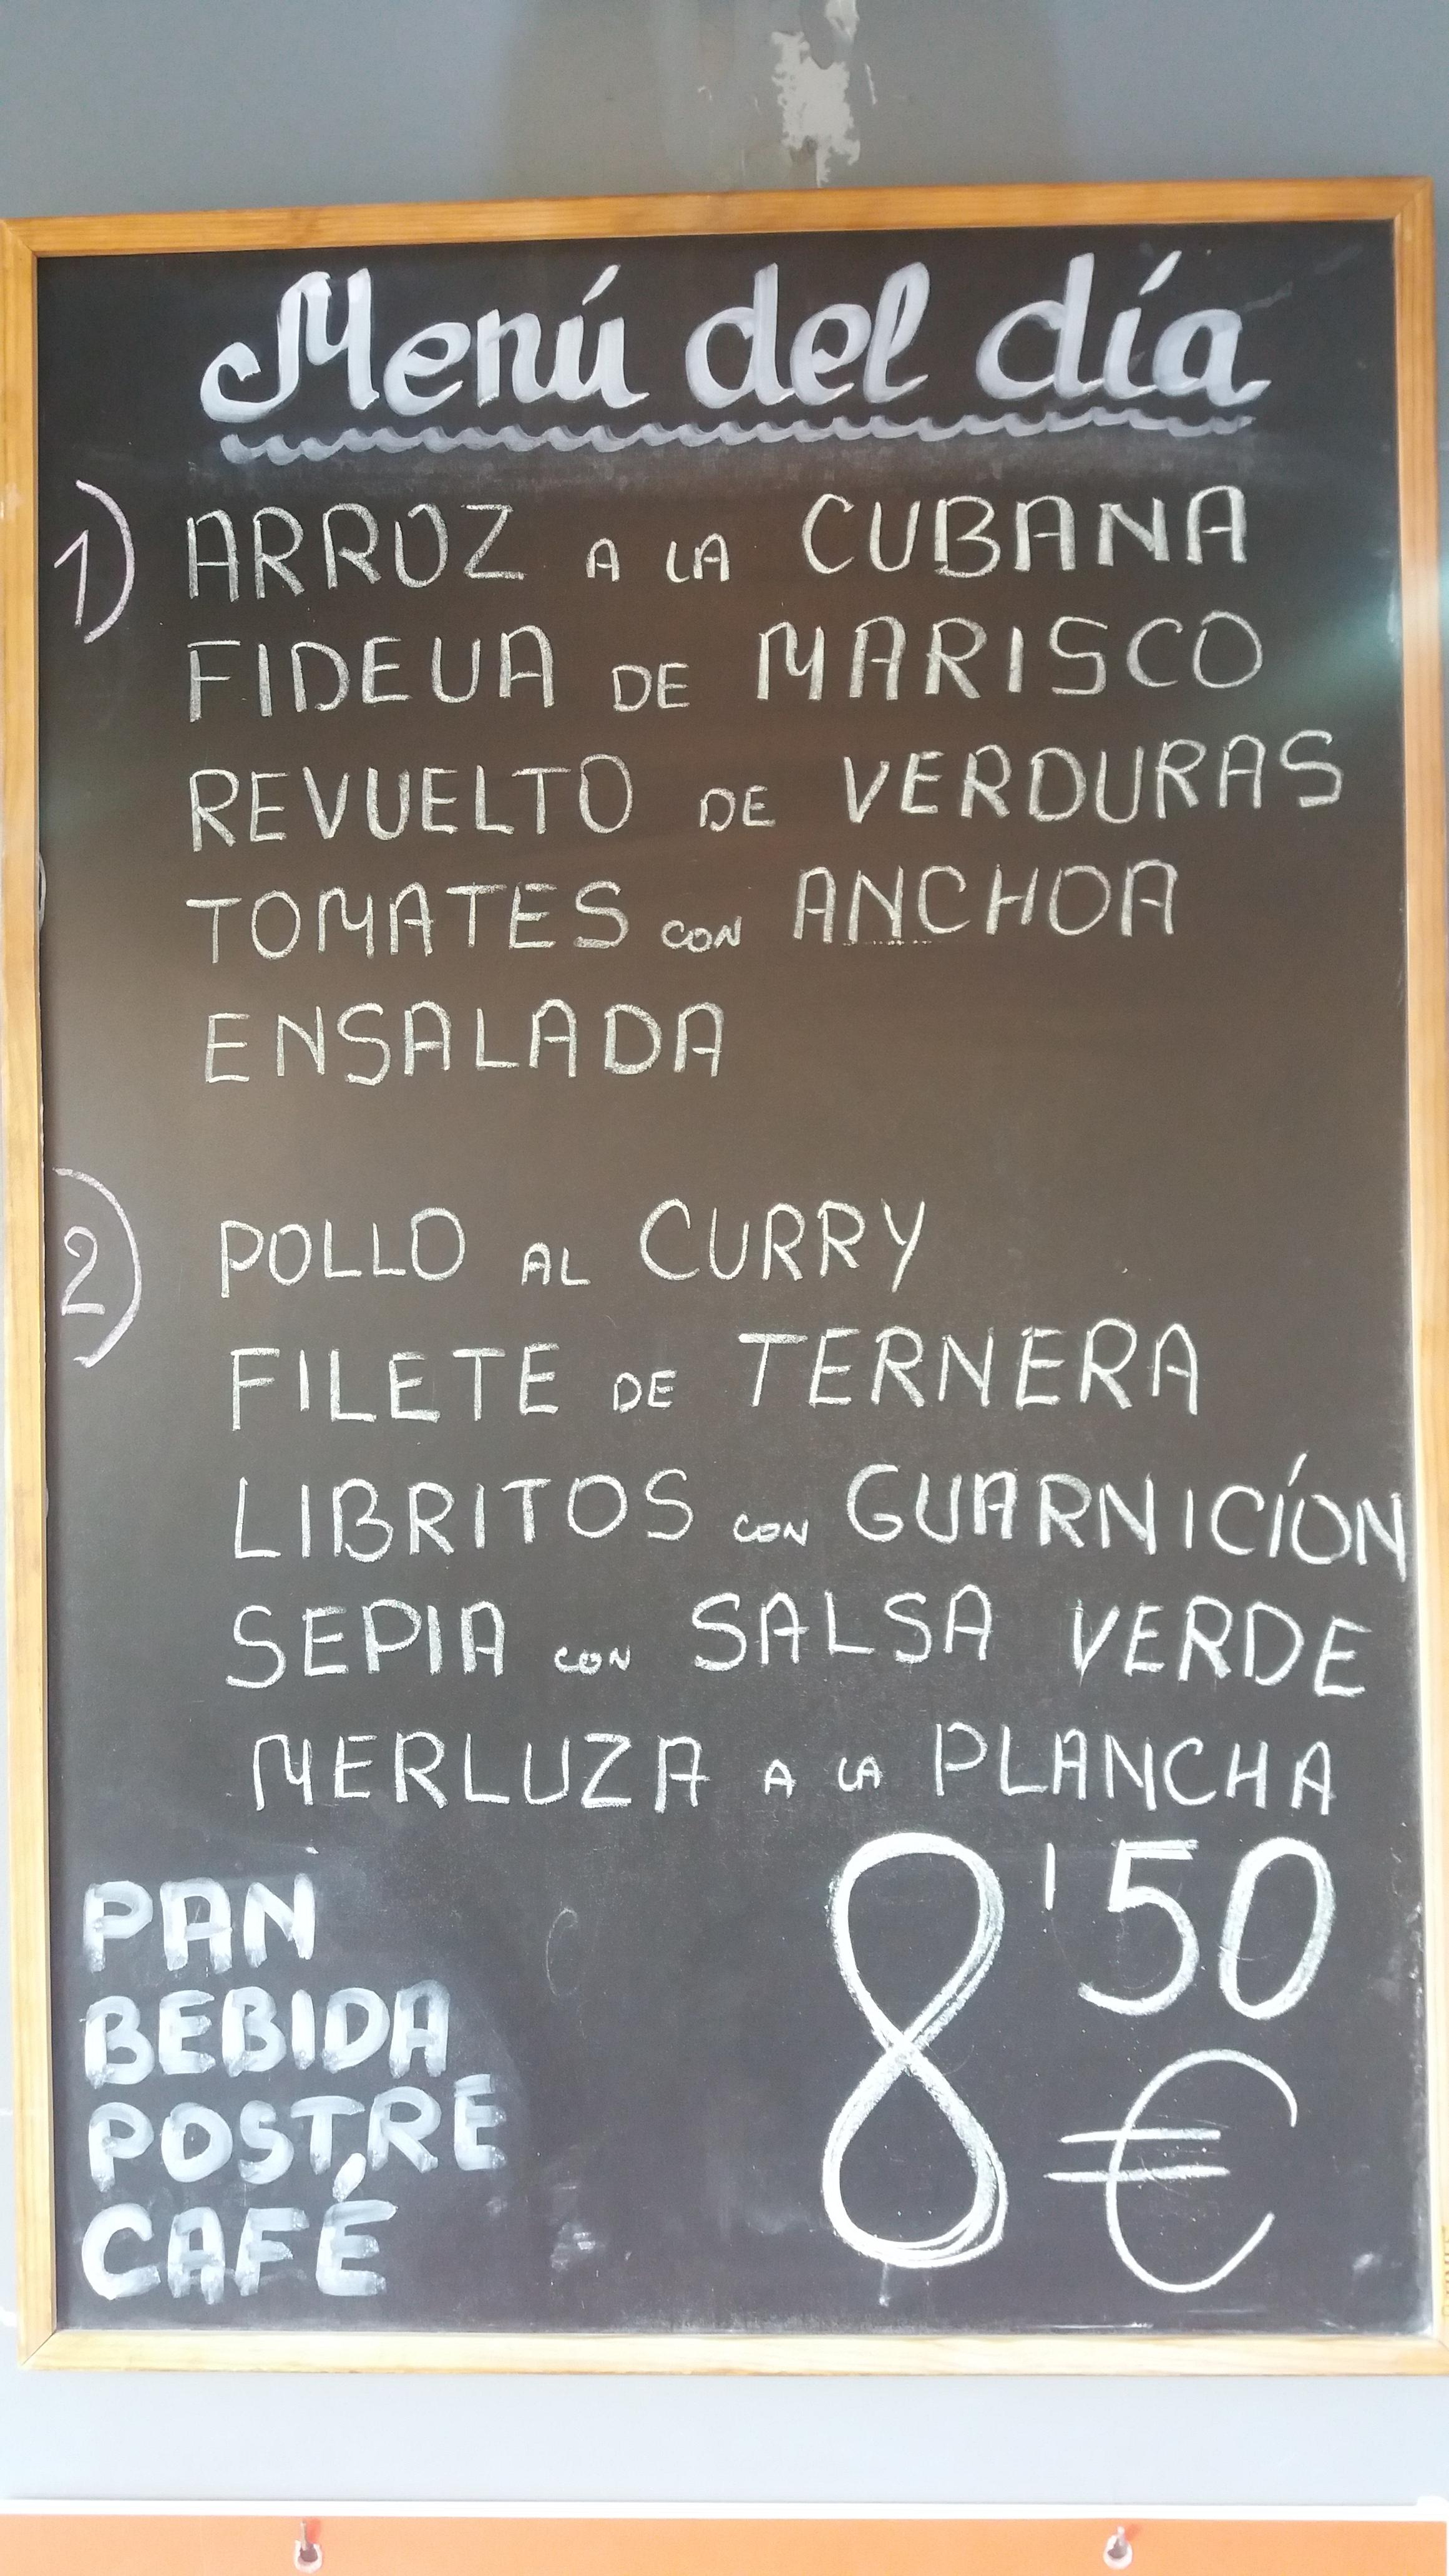 Menú del día
1) ARROZ A LA CUBANA
FIDEUA DE MARISCO
REVUELTO DE VERDURAS
TOMATES CON ANCHOA
ENSALADA
2) POLLO AL CURRY
FILETE DE TERNERA
LIBRITOS CON GUARNICÍON
SEPIA CON SALSA VERDE
MERLUZA A LA PLANCHA
PAN
BEBIDA
POSTRE
CAFÉ
8'50
€